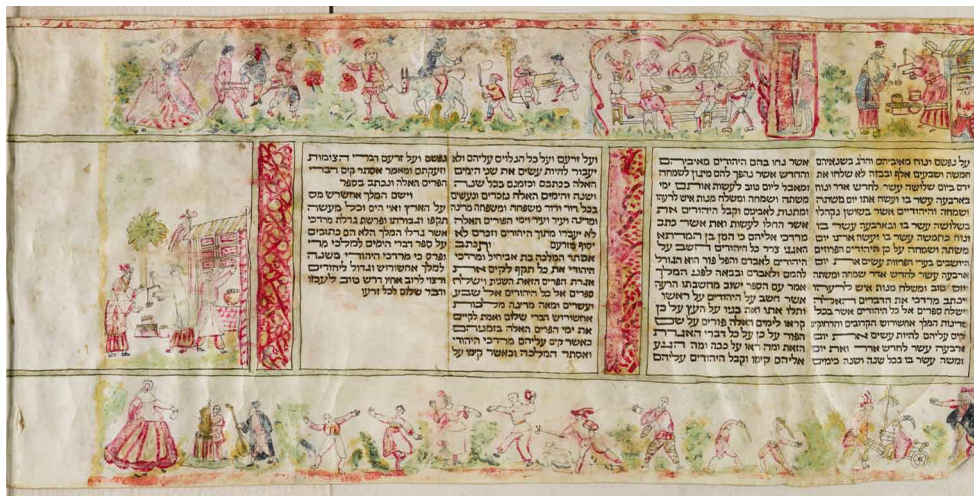 על נפשם ונוח מאיביהם והרג בשנאיהם
חמשה ושבעים אלף ובבזה לא שלחו את
ידם ביום שלושה עשר לחדש אדר ונוח
בארבעה עשר בו ועשה אתו יום משתה
ושמחה והיהודיים אשר בשושן נקהלו
בשלושה עשר בו ובארבעה עשר בו
ונוח בחמשה עשר בו ועשה אתו יום
משתה ושמחה על כן היהודים הפרוזים
הישבים בערי הפרזות עשים את יום
ארבעה עשר לחדש אדר שמחה ומשתה
ויום טוב ומשלח מנות איש לרעהו
ויכתב מרדכי את הדברים האלה
וישלח ספרים אל כל היהודים אשר בכל
מדינות המלך אחשורוש הקרובים והרחוקים
לקים עליהם להיות עשים את יום
ארבעה עשר לחדש אדר ואת יום
חמשה עשר בו בכל שנה ושנה כימים
אשר נחו בהם היהודים מאיביהם
והחדש אשר נהפך להם מיגון לשמחה
ומאבל ליום טוב לעשות אותם ימי
משתה ושמחה ומשלח מנות איש לרעהו
ומתנות לאבינים וקבל היהודים את
אשר החלו לעשות ואת אשר כתב
מרדכי אליהם כי המן בן המדתא
האגגי צרר כל היהודים חשב על
היהודים לאבדם והפל פור הוא הגורל
להמם ולאבדם ובבאה לפני המלך
אמר עם הספר ישוב מחשבתו הרעה
אשר חשב על היהודים על ראשו
ותלו אתו ואת בניו על העץ על כן
קראו לימים האלה פורים על שם
הפור על כן על כל דברי האגרת
הזאת ומה ראו על ככה ומה הגיע
אליהם קימו וקבל היהודים עליהם
ועל זרעם ועל כל הנלוים עליהם ולא
יעבור להיות עשים את שני הימים
האלה ככתבם וכזמנם בכל שנה
ושנה והימים האלה נזכרים ונעשים
בכל דור ודור משפחה ומשפחה מדינה
ומדינה ועיר ועיר וימי הפורים האלה
לא יעברו מתוך היהודים וזכרם לא
יסוף מזרעם ותכתב
אסתר המלכה בת אביחיל ומרדכי
היהודי את כל תקף לקים את
אגרת הפרים הזאת השנית וישלח
ספרים אל כל היהודים אל שבע
ועשרים ומאה מדינה מלכות
אחשורוש דברי שלום ואמת לקיים
את ימי הפרים האלה בזמניהם
כאשר קים עליהם מרדכי היהודי
ואסתר המלכה וכאשר קימו על
נפשם ועל זרעם דברי הצומות
וזעקתם ומאמר אסתר קים דברי
הפרים האלה ונכתב בספר
וישם המלך אחשורש מס
על הארץ ואיי הים וכל מעשה
תקפו וגבורתו ופרשת גדלת מרדכי
אשר גדלו המלך הלא הם כתובים
על ספר דברי הימים למלכי מדי
ופרס כי מרדכי היהודי משנה
למלך אחשורוש וגדול ליהודים
ורצוי לרוב אחיו דרש טוב לעמו
ודבר שלום לכל זרעו